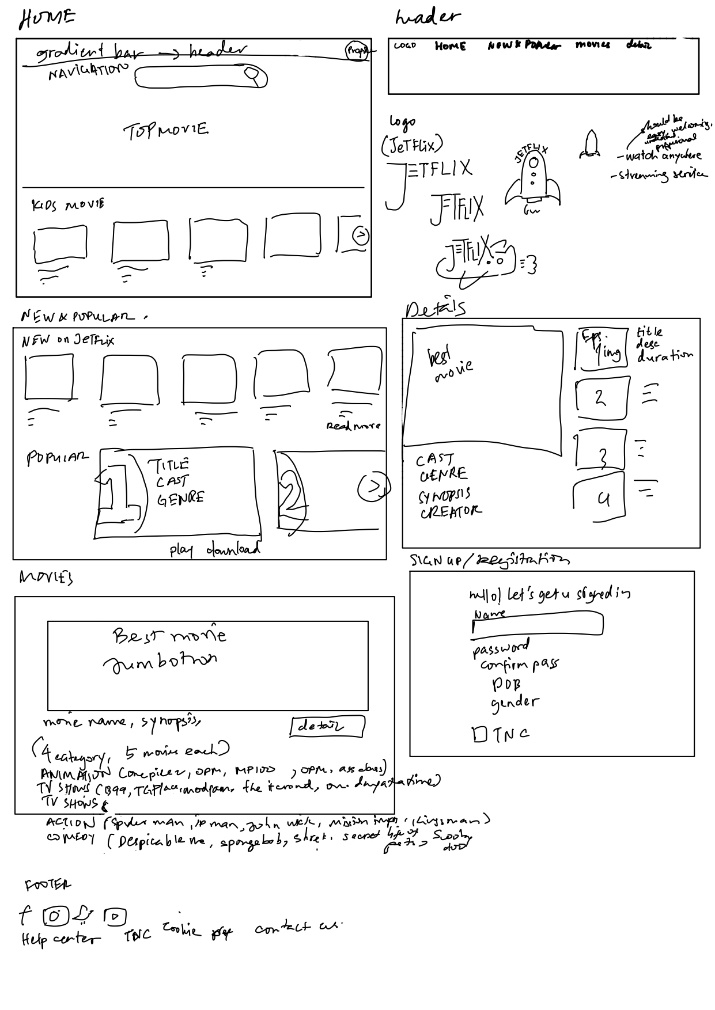 HOME
gradient bar → header
NAVIGATION
TOP MOVIE
KIDS MOVIE
header
LOGO HOME NEW & POPular movies detail
logo
(JeTFLix)
JETFLIX
JETFLIX
JETFLIX
JETFLIX
should be
easy welcoming,
professional
- watch anywhere
- streaming service
NEW & POPULAR.
NEW on JETFLix
Read more
POPULAR
1
TITLE
CAST
GENRE
2
play download
Details
best
movie
Eps.
1/img
title
desc
duration
2
3
4
CAST
GENRE
SYNOPSIS
CREATOR
MOVIES
Best movie
Jumbotron
movie name, synopsis,
detail
(4 category, 5 movies each)
ANIMATION (onepiece, OPM, MP100, OPM, ass class)
TV SHOWS (B99, TGPlace, modfam, the itcrowd, one day at a time)
TV SHOWS
ACTION (Spider man, ip man, john wick, mission impo, kingsman)
COMEDY (Despicable me, spongebob, shrek, secret life of pets, Scooby doo)
SIGN UP / registration
hello! Let's get u signed in
Name
password
confirm pass
DOB
gender
TNC
FOOTER
Help center TNC Cookie contact us